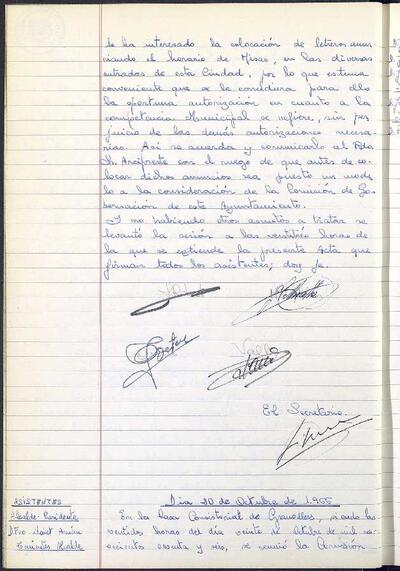 te ha interesado la colocación de letreros anun-
ciando el horario de Misas, en las diversas
entradas de esta Ciudad, por lo que estima
conveniente que se le conceda para ello
la oportuna autorización en cuanto a la
competencia Municipal se refiere, sin per
juicio de las demás autorizaciones necesa-
rias. Así se acuerda y comunicarlo al Rdo
Sr. Arcipreste con el ruego de que antes de co-
locar dichos anuncios sea puesto un mode
lo a la consideración de la Comisión de Go-
bernación de este Ayuntamiento.
Y no habiendo otros asuntos a tratar se
levantó la sesión a las veintitrés horas de
la que se extiende la presente Acta que
firman todos los asistentes; doy fe.
El Secretario.
ASISTENTES
Alcalde-Presidente
Día 20 de Octubre de 1.966
En la Casa Consistorial de Granollers, siendo las
veintidos horas del día veinte de Octubre de mil no-
vecientos sesenta y seis, se reunió la Comisión